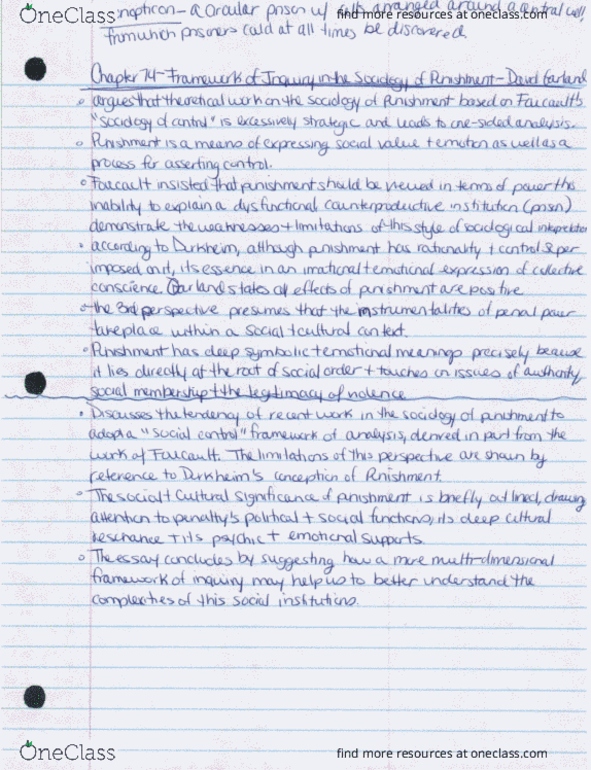 OneClass
find more resources at oneclass.com
nopticon - a circular prison w/ cells arranged around a central cell,
from which prisoners could at all times be discovered
Chapter 74 - Framework of Inquiry in the Sociology of Punishment - David Garland
argues that theoretical work on the sociology of Punishment based on Foucault's
"sociology of control" is excessively strategic and leads to one-sided analysis.
Punishment is a means of expressing social value + emotion as well as a
process for asserting control.
Foucault insisted that punishment should be viewed in terms of power this
inability to explain a dysfunctional counterproductive institution (prison)
demonstrate the weaknesses + limitations of this style of sociological
according to Durkheim, although punishment has rationality + control super
imposed on it, its essence in an irrational + emotional expression of collective
conscience. Garland states all effects of punishment are positive
the 3rd perspective presumes that the instrumentalities of penal power
take place within a social + cultural context.
Punishment has deep symbolic + emotional meanings precisely because
it lies directly at the root of social order + touches on issues of authority,
social membership + the legitimacy of violence
Discusses the tendency of recent work in the sociology of punishment to
adopt a "social control" framework of analysis, derived in part from the
work of Foucault. The limitations of this perspective are shown by
reference to Durkheim's conception of Punishment.
The social + Cultural significance of punishment is briefly outlined, drawing
attention to penalty's political + social functions, its deep cultural
+ its psychic + emotional supports.
The essay concludes by suggesting how a more multi-dimensional
framework of inquiry may help us to better understand the
complexities of this social institutions.
OneClass
find more resources at oneclass.com